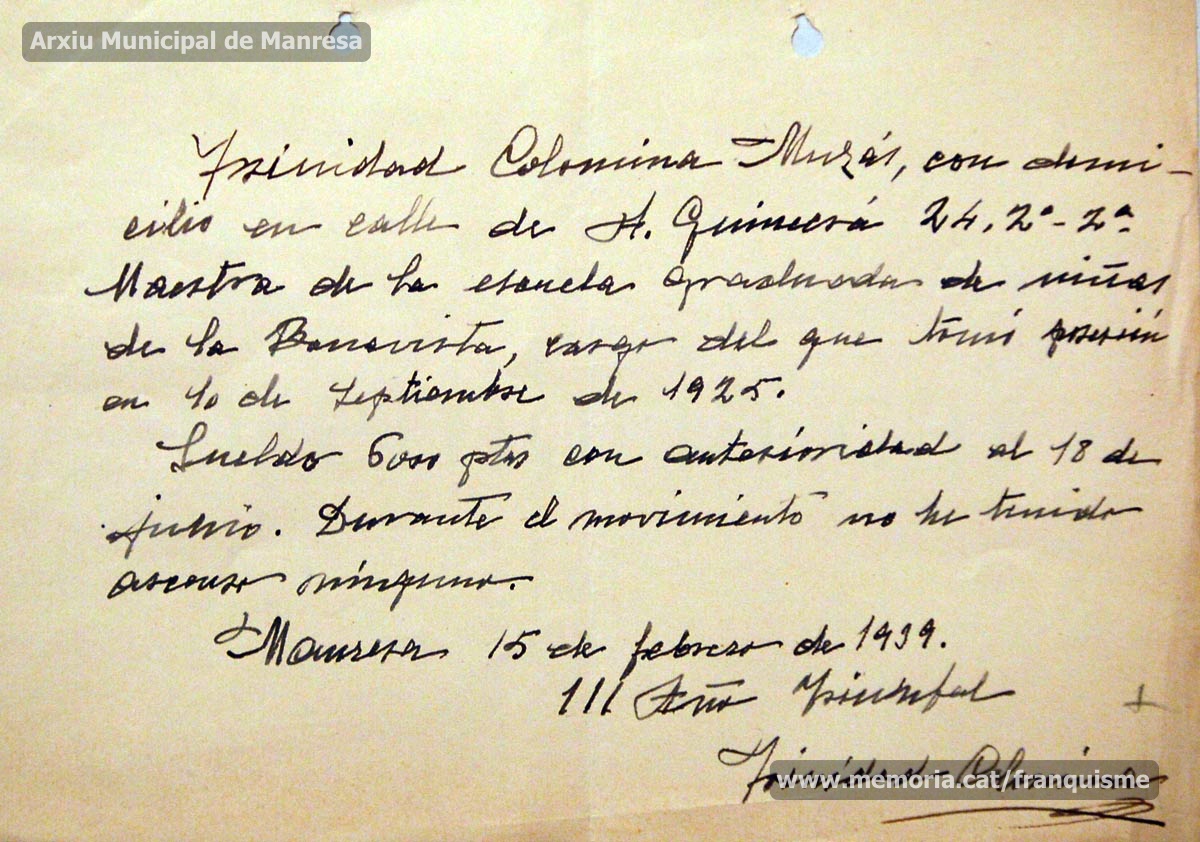 Arxiu Municipal de Manresa
Trinidad Colomina Murás, con domi-
cilio en calle de A. Guimerá 24, 2º-2ª
Maestra de la escuela graduada de niñas
de la Bonavista, cargo del que tomó posesión
en 10 de Septiembre de 1925.
Sueldo 6000 ptas con anterioridad al 18 de
julio. Durante el movimiento no he tenido
ascenso ninguno.
Manresa 15 de febrero de 1939.
III Año Triunfal
Trinidad Colomina
www.memoria.cat/franquisme